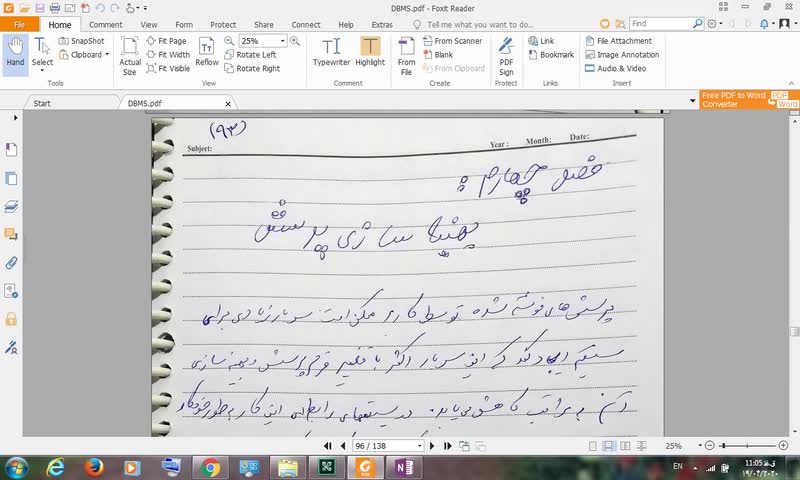 DBMS.pdf - Foxit Reader
File Home Comment View Form Protect Share Connect Help Extras Tell me what you want to do... Find
Hand Select SnapShot Clipboard Actual Size Fit Page Fit Width Fit Visible Reflow 25% Rotate Left Rotate Right Typewriter Highlight From File From Scanner Blank From Clipboard PDF Sign Link Bookmark File Attachment Image Annotation Audio & Video
Tools View Comment Create Protect Links Insert
Start DBMS.pdf Free PDF to Word Converter PDF Word
(۹۳)
Subject: Year: Month: Date:
فصل چهارم:
بهینه سازی پرسش
پرسش های نوشته شده توسط کاربر ممکن است سربار زیادی برای
سیستم ایجاد کند که این سربار اکثر با تغییر فرم پرسش و بهینه سازی
آن به مراتب کاهش می یابد. در سیستمهای رابطه ای این کار به طور خودکار
96 / 138 25%
EN 11:05 ق.ظ
۱۹/۰۴/۲۰۲۰